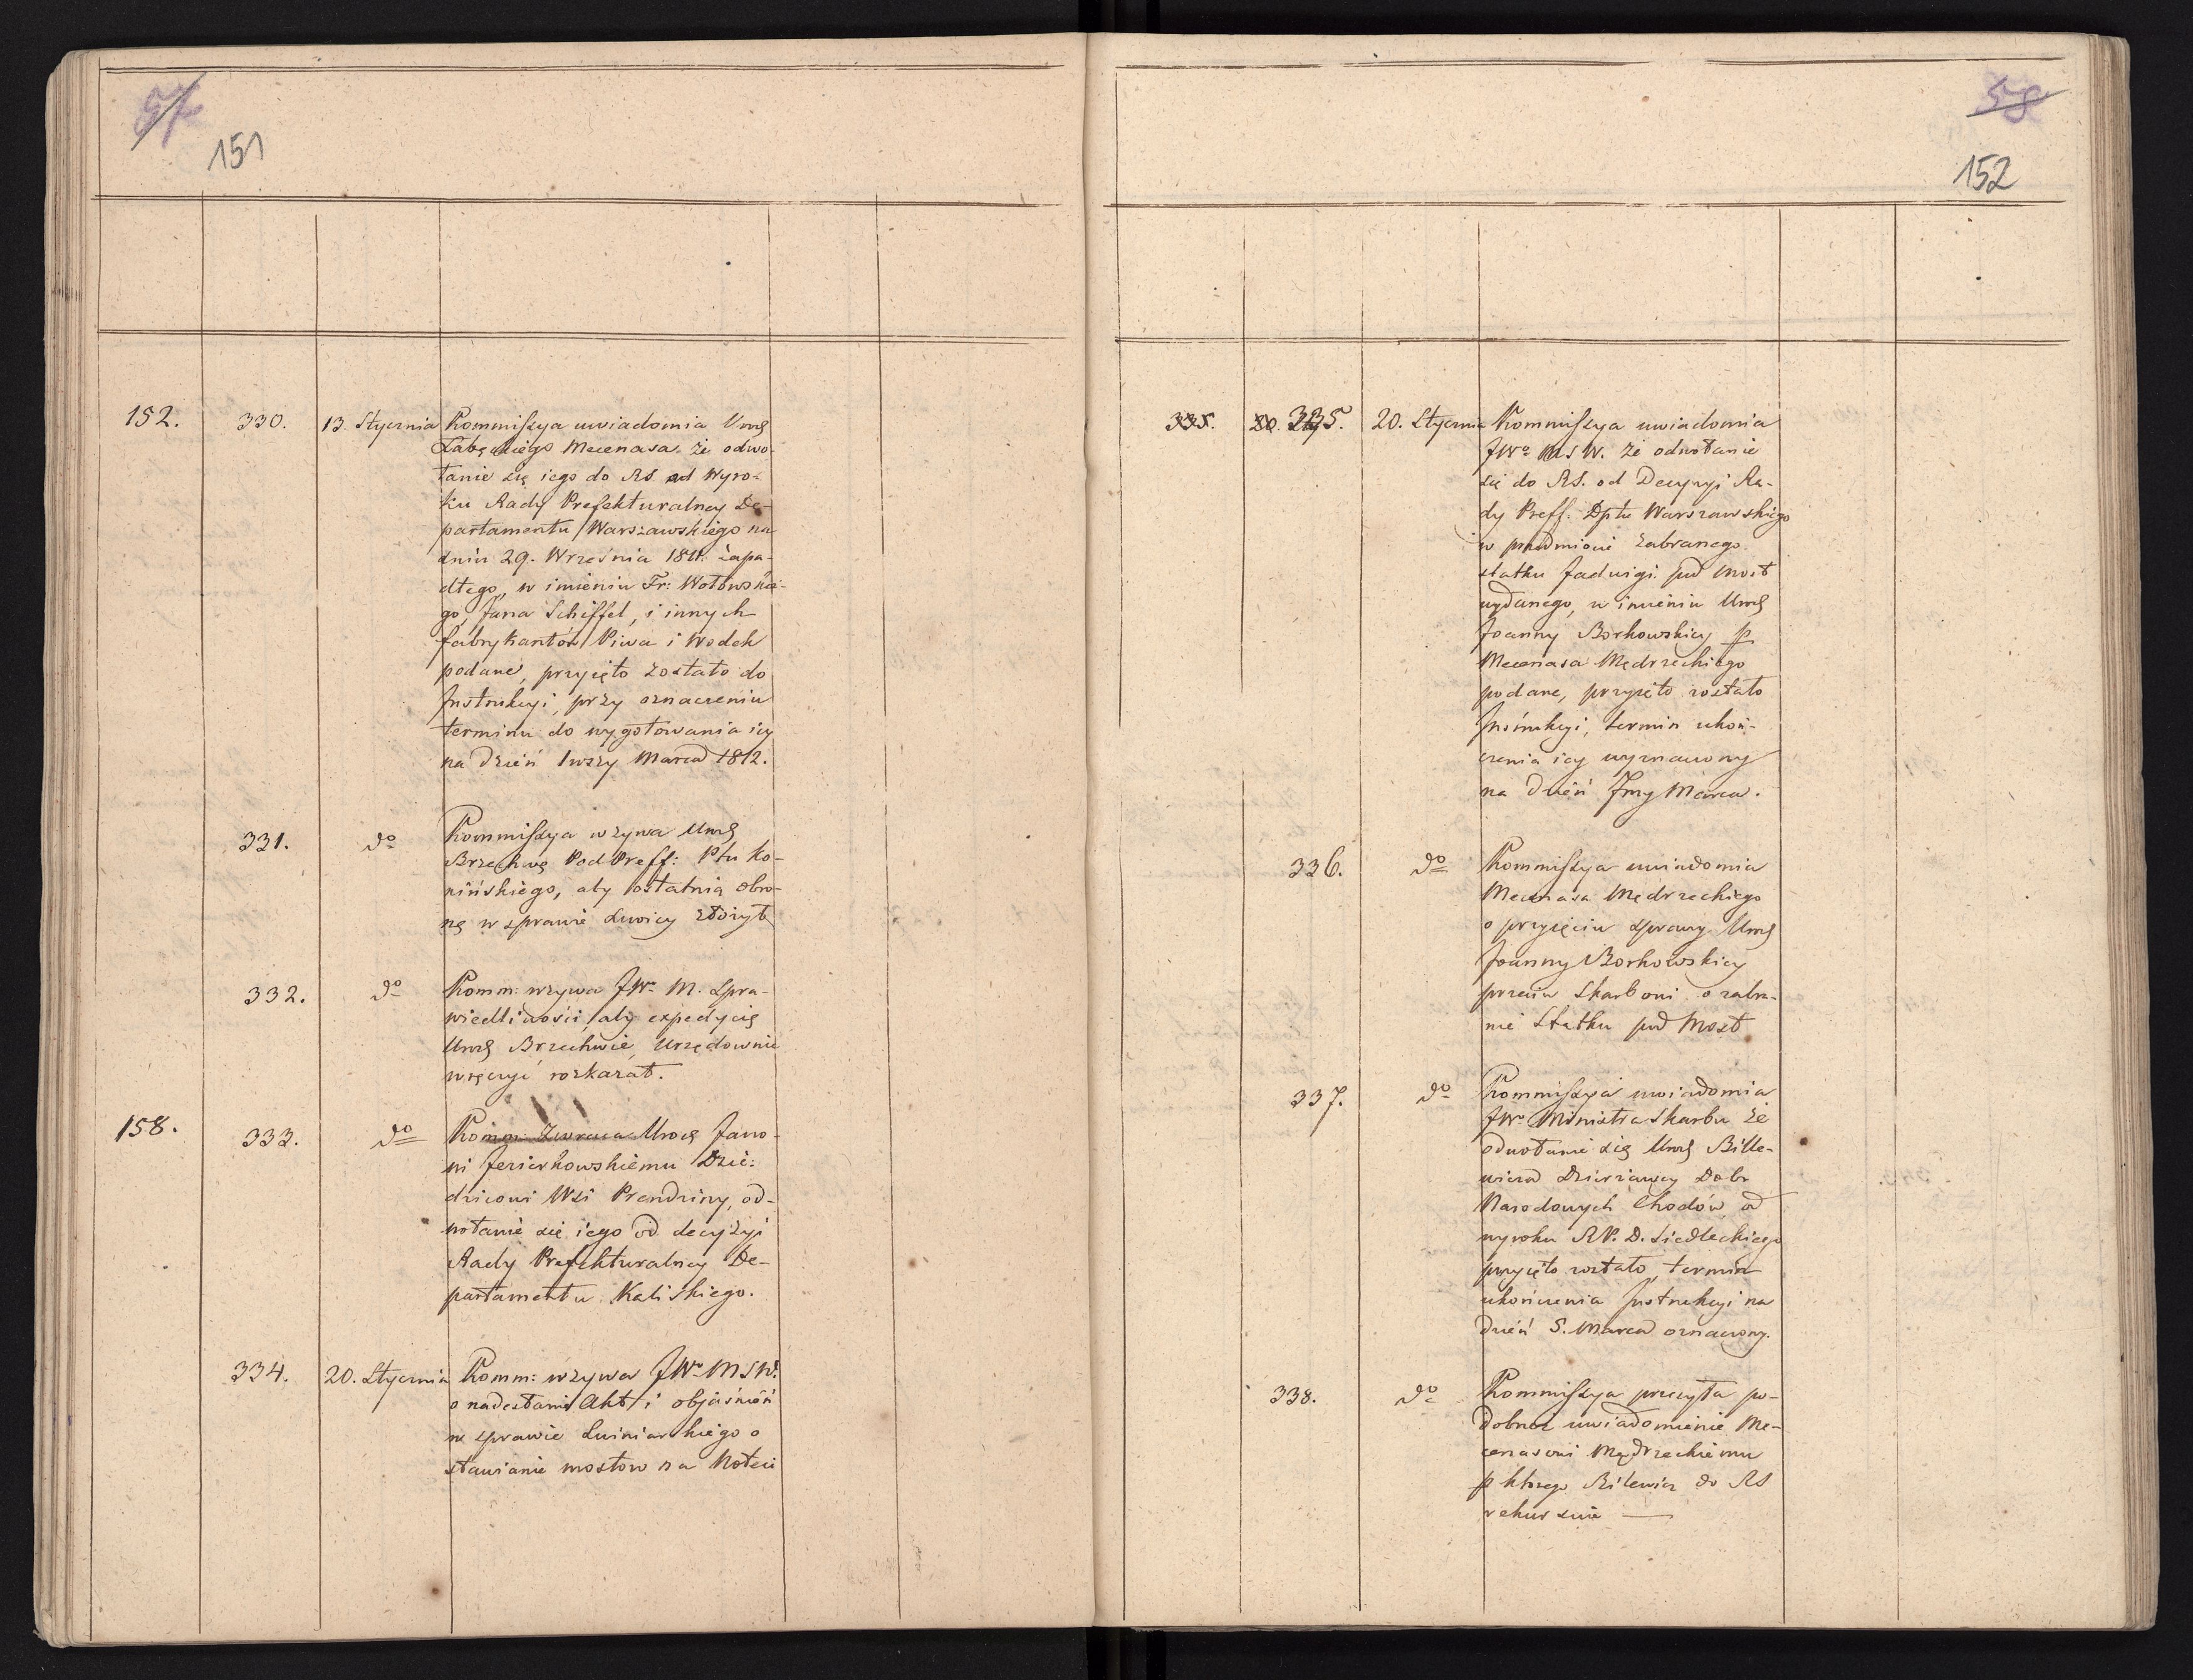 57
151
152. 330. 13. Stycznia Kommissya uwiadomia Urog
Łabęckiego Mecenasa że odwo-
łanie się iego do RS. od Wyro-
ku Rady Prefekturalney De-
partamentu Warszawskiego na
dniu 29. Września 1811. zapa-
dłego, w imieniu Fr: Wołowskie-
go, Jana Schiffel, i innych
fabrykantów Piwa i Wodek
podane, przyięto zostało do
Instrukcyi, przy oznaczeniu
terminu do wygotowania iey
na dzień 1wszy Marca 1812.
331. do Kommissya wzywa Urog
Brzechwę PodPreff: Ptu Ko-
nińskiego, aby ostatnią obro-
nę w sprawie Lwicy złożył
332. do Komm: wzywa JWo M. Spra-
wiedliwości, aby expedycię
Urog Brzechwie, Urzędownie
wręczyć rozkazał.
158. 333. do Komm: Zwraca Urog Jano-
wi Jeziorkowskiemu Dzie-
dzicowi Wsi Prendziny, od-
wołanie się iego od decyzyi
Rady Prefekturalney De-
partamentu Kaliskiego.
334. 20. Stycznia Komm: wzywa JWo MSW.
o nadesłanie Akt i objaśnień
w sprawie Luiniarskiego o
stawianie mostow na Noteci
58
152
335. 20. 335. 20. Stycznia Kommissya uwiadomia
JWo MSW. że odwołanie
się do RS. od Decyzyi Ra-
dy Preff. Dptu Warszawskiego
w przedmiocie zabranego
statku Jadwigi pod most
wydanego, w imieniu Urog
Joanny Borkowskiey p
Mecenasa Mędrzeckiego
podane, przyięto zostało
Instrukcyi, termin ukoń-
czenia iey wyznaczony
na dzień 1wszy Marca.
336. do Kommissya uwiadomia
Mecenasa Mędrzeckiego
o przyięciu sprawy Urog
Joanny Borkowskiey
przeciw Skarbowi o zabra-
nie Statku pod Most
337. do Kommissya uwiadomia
JWo Ministra Skarbu że
odwołanie się Urog Bille-
wicza Dzierżawcy Dobr
Narodowych Chodów, od
wyroku RP. D. Siedleckiego
przyięto zostało, termin
ukończenia Instrukcyi na
dzień 5. Marca oznaczony.
338. do Kommissya przesyła po-
dobne uwiadomienie Me-
cenasowi Mędrzeckiemu
p ktorego Bilewicz do RS
rekursuie —